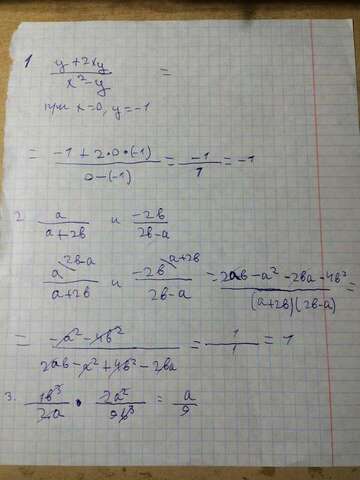 1 (y + 2xy)/(x² - y) =
при x=0, y=-1
= (-1 + 2·0·(-1))/(0-(-1)) = -1/1 = -1
2. a/(a+2b) и -2b/(2b-a)
a^(2b-a)/(a+2b) и -2b^(a+2b)/(2b-a) = (2ab - a² - 2ba - 4b²)/((a+2b)(2b-a)) =
= (-a² - 4b²)/(2ab - a² + 4b² - 2ba) = 1/1 = 1
3. 1b³/2a · 2a²/9b³ = a/9